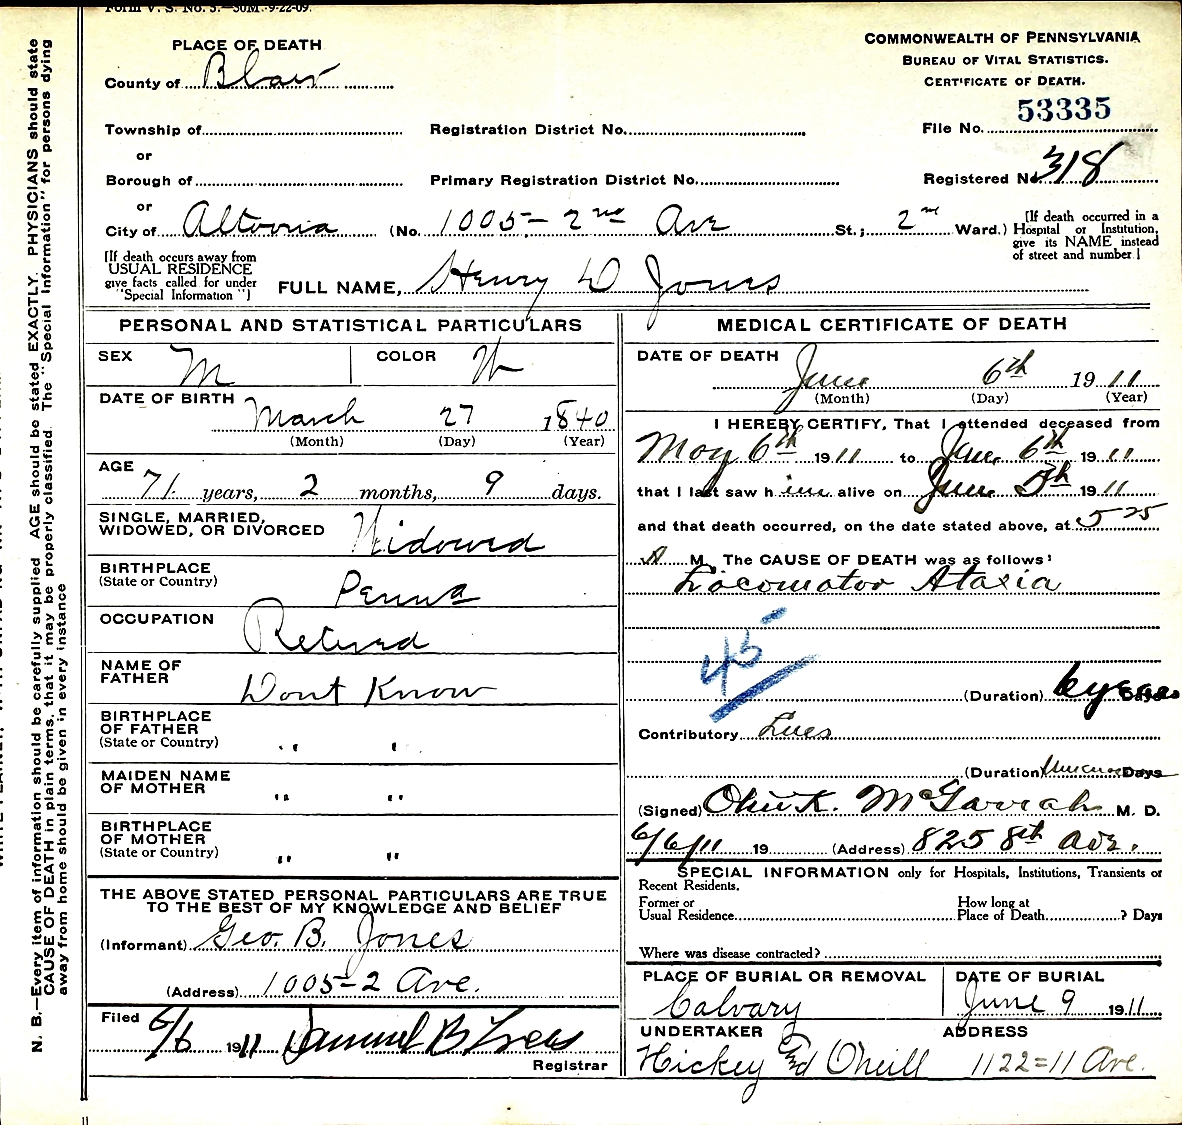 Form V. S. No. 5.—50M.-9-22-09.
PLACE OF DEATH
County of Blair
Township of
or
Borough of
or
City of Altoona
Registration District No.
Primary Registration District No.
(No. 1005- 2nd Ave St.; 2nd Ward.)
COMMONWEALTH OF PENNSYLVANIA
BUREAU OF VITAL STATISTICS.
CERTIFICATE OF DEATH.
File No. 53335
Registered No. 318
[If death occurred in a
Hospital or Institution,
give its NAME instead
of street and number.]
[If death occurs away from
USUAL RESIDENCE
give facts called for under
"Special Information"]
FULL NAME, Henry D Jones
PERSONAL AND STATISTICAL PARTICULARS
SEX M
COLOR W
DATE OF BIRTH March 27 1840
(Month) (Day) (Year)
AGE
71 years, 2 months, 9 days.
SINGLE, MARRIED,
WIDOWED, OR DIVORCED Widowed
BIRTHPLACE
(State or Country) Penna
OCCUPATION
Retired
NAME OF
FATHER Dont Know
BIRTHPLACE
OF FATHER
(State or Country) " "
MAIDEN NAME
OF MOTHER " "
BIRTHPLACE
OF MOTHER
(State or Country) " "
THE ABOVE STATED PERSONAL PARTICULARS ARE TRUE
TO THE BEST OF MY KNOWLEDGE AND BELIEF
(Informant) Geo. B. Jones
(Address) 1005-2 Ave.
Filed 6/6 1911 Samuel B
Registrar
MEDICAL CERTIFICATE OF DEATH
DATE OF DEATH June 6th 1911
(Month) (Day) (Year)
I HEREBY CERTIFY, That I attended deceased from
May 6th 1911 to June 6th 1911
that I last saw him alive on June 5th 1911
and that death occurred, on the date stated above, at 5 25
A M. The CAUSE OF DEATH was as follows:
Locomotor Ataxia
45
(Duration) 6 years Days
Contributory Lues
(Duration) Days
(Signed) K. McGarrah M. D.
6/6/11 19 (Address) 825 8th Ave.
SPECIAL INFORMATION only for Hospitals, Institutions, Transients or
Recent Residents.
Former or
Usual Residence
How long at
Place of Death ? Days
Where was disease contracted?
PLACE OF BURIAL OR REMOVAL
Calvary
DATE OF BURIAL
June 9 1911
UNDERTAKER
Hickey Ed O'neill
ADDRESS
1122=11 Ave.
N. B.—Every item of information should be carefully supplied. AGE should be stated EXACTLY. PHYSICIANS should state
CAUSE OF DEATH in plain terms, that it may be properly classified. The "Special Information" for persons dying
away from home should be given in every instance